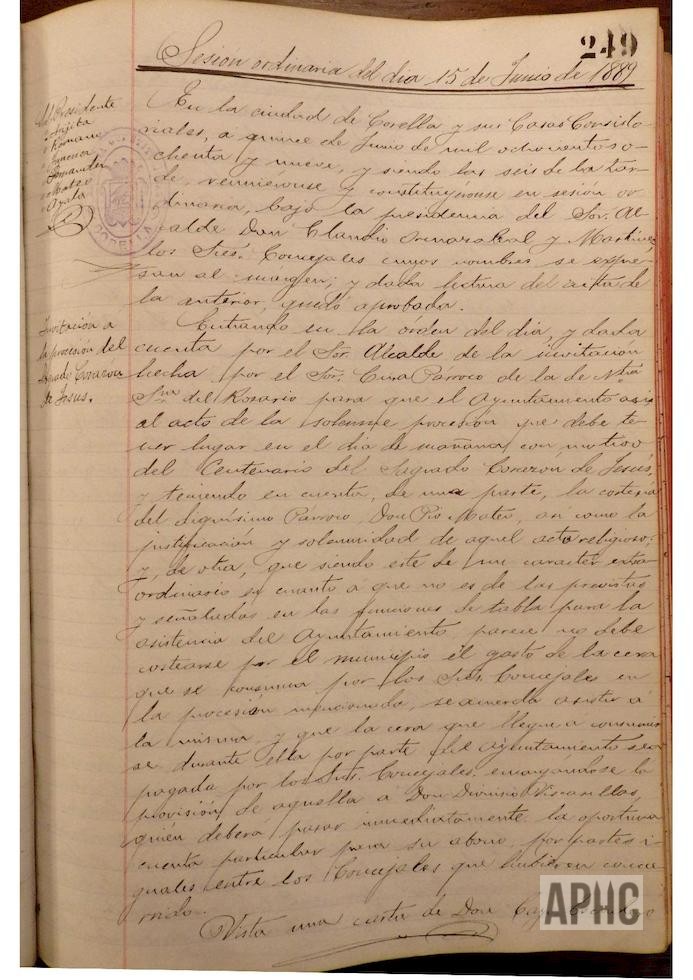 249
Sesion ordinaria del dia 15 de Junio de 1889
Sr. Presidente
" Romano
" Mateo
" Ayala
En la ciudad de Corella y sus Casas Consisto-
riales, a quince de Junio de mil ochocientos o-
chenta y nueve, y siendo las seis de la tar-
de, reunieronse y constituyéronse en sesion or-
dinaria, bajo la presidencia del Sor. Al-
calde Don Claudio y Martinez
los Sres. Concejales cuyos nombres se expre-
san al margen; y dada lectura del acta de
la anterior, quedó aprobada.
Invitación a
la procesión del
Sagrado Corazon
de Jesus.
Entrando en la órden del dia, y dada
cuenta por el Sor. Alcalde de la invitación
hecha por el Sor. Cura Párroco de la de Ntra
Sra del Rosario para que el Ayuntamiento asis
al acto de la solemne procesion que debe te-
ner lugar en el dia de mañana con motivo
del Centenario del Sagrado Corazón de Jesús,
y teniendo en cuenta, de una parte, la cortesia
del dignísimo Párroco, Don Pio Mateo, así como la
justificación y solemnidad de aquel acto religioso;
y, de otra, que siendo este de un caracter extra-
ordinario en cuanto a que no es de las previstas
y señaladas en las funciones de tabla para la
asistencia del Ayuntamiento parece no debe
costearse por el municipio el gasto de la cera
que se consuma por los Sres. Concejales en
la procesion mencionada, se acuerda asistir á
la misma y que la cera que llegue a consumir
se durante ella por parte del Ayuntamiento sea
pagada por los Sres. Concejales, encargándose la
provisión de aquella á Don Dionisio Viscasillas,
quién deberá pasar inmediatamente la oportuna
cuenta particular para su abono, por partes i-
guales entre los Concejales que hubieren concu-
rrido.
Vista una carta de Don
APHC